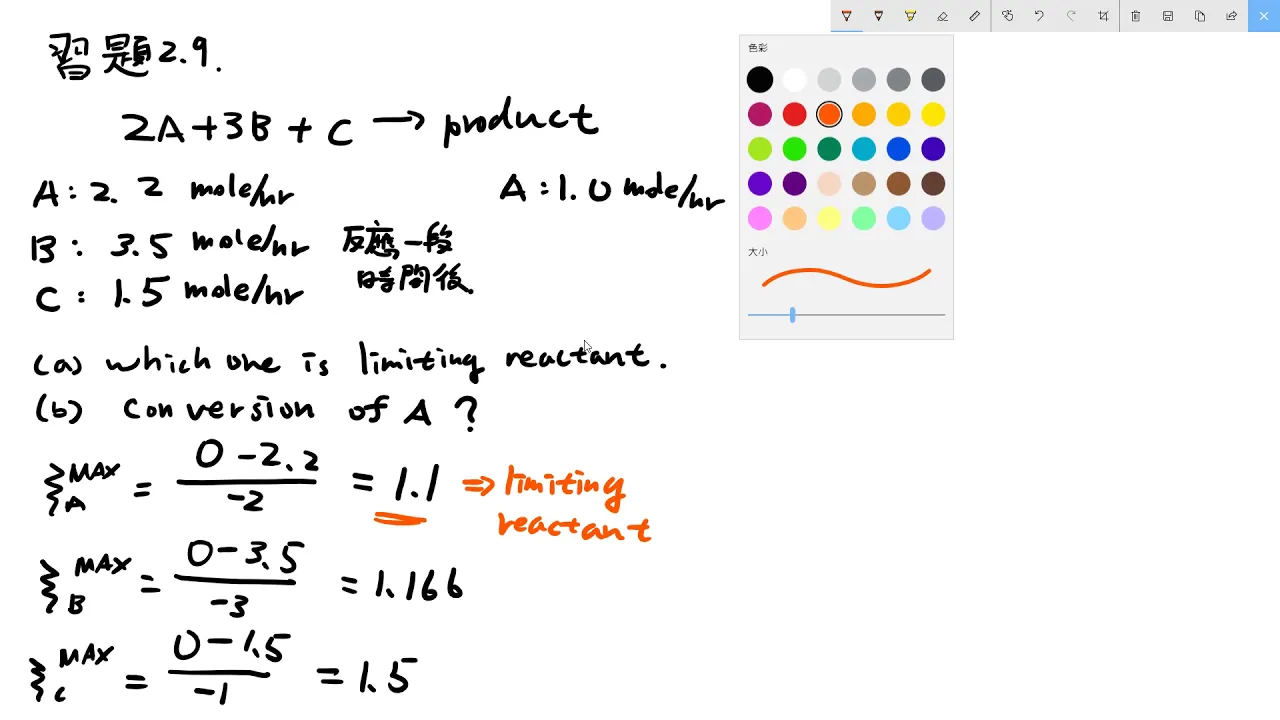 習題2.9.
2A+3B+C→product
A:2.2 mole/hr
A:1.0 mole/hr
B: 3.5 mole/hr
C: 1.5 mole/hr
反應一段
時間後.
(a) which one is limiting reactant.
(b) conversion of A ?
ξ_A^MAX = (0-2.2)/(-2) = 1.1 ⇒ limiting
reactant
ξ_B^MAX = (0-3.5)/(-3) = 1.166
ξ_C^MAX = (0-1.5)/(-1) = 1.5
色彩
大小